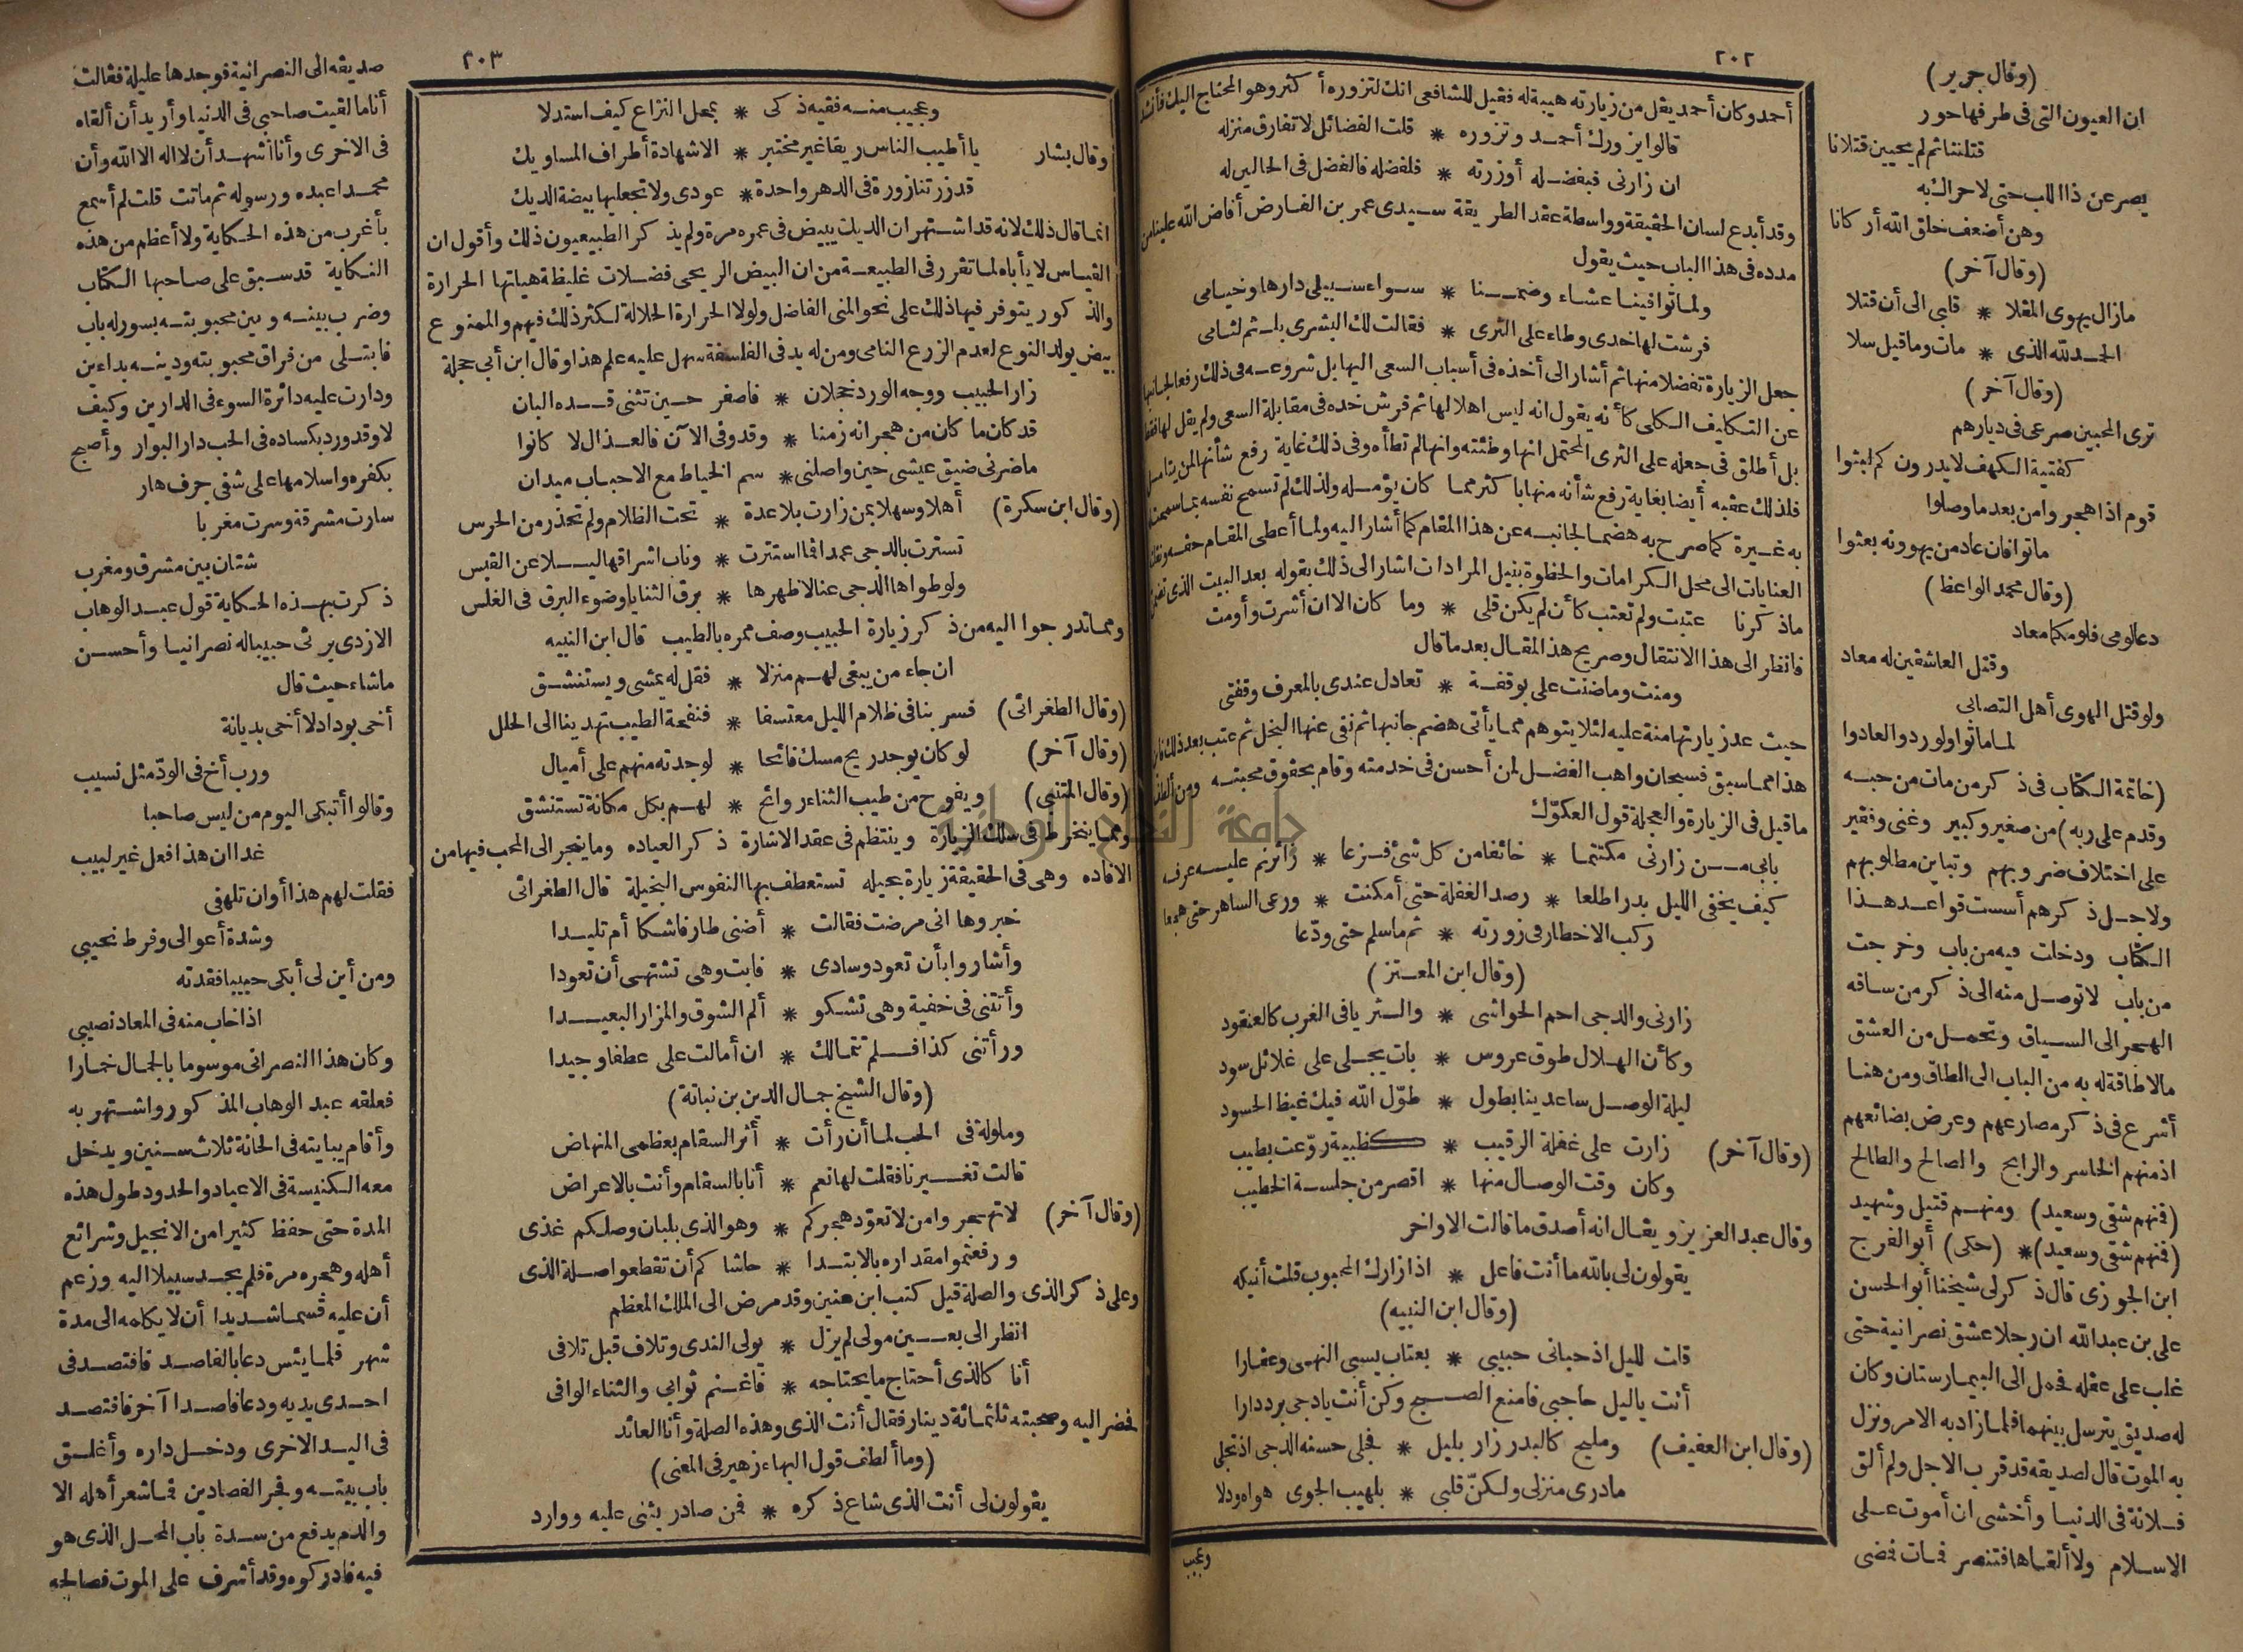 ٢٠٢
أحمد وكان أحمد يقل من زيارته هيبة له فقيل للشافعى انك لتزوره أكثر وهو المحتاج اليك فأنشد
قالوا يزورك أحمد وتزوره * قلت الفضائل لا تفارق منزله
ان زارنى فبفضله أوزرته * فلفضله فالفضل فى الحالين له
وقد أبدع لسان الحقيقة وواسطة عقد الطريقة سيدى عمر بن الفارض أفاض الله علينا من
مدده فى هذا الباب حيث يقول
ولما توافينا عشاء وضمنا * سواء سبيلى دارها وخيامى
فرشت لها خدى وطاء على الثرى * فقالت لك البشرى بلثم لثامى
جعل الزيارة تفضلا منها ثم أشار الى أخذه فى أسباب السعى اليها بل شروعه فى ذلك رفعا لجانبها
عن التكليف الكلى كأنه يقول انه ليس اهلا لها ثم فرش خده فى مقابلة السعى ولم يقل لها فقط
بل أطلق فى جعله على الثرى المحتمل انها وطئته وانها لم تطأه وفى ذلك غاية رفع شأنها لمن يتأمل
فلذلك عقبه أيضا بغاية رفع شأنه منها با كثر مما كان يؤمله ولذلك لم تسمح نفسه بما سمحت
به غيرة كما صرح به هضما لجانبه عن هذا المقام كما أشار اليه ولما أعطى المقام حقه ونقلت
العنايات الى محل الكرامات والحظوة بنيل المرادات اشار الى ذلك بقوله بعد البيت الذى تضمن
ماذكرنا عتبت ولم تعتب كأن لم يكن قلى * وما كان الا ان أشرت وأومت
فانظر الى هذا الانتقال وصريح هذا المقال بعد ما قال
ومنت وما ضنت على بوقفة * تعادل عندى بالمعرف وقفتى
حيث عد زيارتها منة عليه لئلا يتوهم مما يأتى هضم جانبها ثم نفى عنها البخل ثم عتب بعد ذلك فأين
هذا مما سبق فسبحان واهب الفضل لمن أحسن فى خدمته وقام بحقوق محبته ومن ألطف
ماقيل فى الزيارة والعجلة قول العكوّك
بابى من زارنى مكتتما * خائفا من كل شئ فزعا * زائر نم عليه عرفه
كيف يخفى الليل بدرا طلعا * رصد الغفلة حتى أمكنت * ورعى الساهر حتى هجعا
ركب الاخطار فى زورته * ثم ما سلم حتى ودّعا
(وقال ابن المعتز)
زارنى والدجى احم الحواشى * والثريا فى الغرب كالعنقود
وكأن الهلال طوق عروس * بات يجلى على غلائل سود
ليلة الوصل ساعدينا بطول * طوّل الله فيك غيظ الحسود
(وقال آخر) زارت على غفلة الرقيب * كظبية روّعت بطيب
وكان وقت الوصال منها * اقصر من جلسة الخطيب
وقال عبد العزيز ويقال انه أصدق ما قالت الاواخر
يقولون لى بالله ما أنت فاعل * اذا زارك المحبوب قلت أنيكه
(وقال ابن النبيه)
قلت لليل اذ حبانى حبيبى * بعتاب يسبى النهى وعقارا
أنت ياليل حاجبى فامنع الصبح وكن أنت يادجى برددارا
(وقال ابن العفيف) ومليح كالبدر زار بليل * فجلى حسنه الدجى اذ تجلى
مادرى منزلى ولكنّ قلبى * بلهيب الجوى هواه ودلا
وعجيب
(وقال جرير)
ان العيون التى فى طرفها حور
قتلننا ثم لم يحيين قتلانا
يصرعن ذا اللب حتى لا حراك به
وهن أضعف خلق الله أركانا
(وقال آخر)
مازال يهوى المقلا * قلبى الى أن قتلا
الحمد لله الذى * مات وما قيل سلا
(وقال آخر)
ترى المحبين صرعى فى ديارهم
كفتية الكهف لايدرون كم لبثوا
قوم اذا هجروا من بعد ماوصلوا
ماتوا فان عاد من يهوونه بعثوا
(وقال محمد الواعظ)
دعالومى فلومكما معاد
وقتل العاشقين له معاد
ولو قتل الهوى أهل التصابى
لما ماتوا ولو ردوا لعادوا
(خاتمة الكتاب فى ذكر من مات من حبه
وقدم على ربه) من صغير وكبير وغنى وفقير
على اختلاف ضروبهم وتباين مطلوبهم
ولاجل ذكرهم أسست قواعد هذا
الكتاب ودخلت فيه من باب وخرجت
من باب لا توصل منه الى ذكر من ساقه
الهجر الى السياق وتحمل من العشق
مالا طاقة له به من الباب الى الطاق ومن هنا
أشرع فى ذكر مصارعهم وعرض بضائعهم
اذ منهم الخاسر والرابح والصالح والطالح
(فمنهم شقى وسعيد) ومنهم قتيل وشهيد
(فمنهم شقى وسعيد) * (حكى) أبو الفرج
ابن الجوزى قال ذكر لى شيخنا أبو الحسن
على بن عبد الله ان رجلا عشق نصرانية حتى
غلب على عقله فحمل الى البيمارستان وكان
له صديق يترسل بينهما فلما زاد به الامر ونزل
به الموت قال لصديقه قد قرب الاجل ولم ألق
فلانة فى الدنيا وأخشى ان أموت على
الاسلام ولا ألقاها فتنصر فمات فمضى
٢٠٣
وعجيب منه فقيه ذكى * بمحل النزاع كيف استدلا
وقال بشار يا أطيب الناس ريقا غير مختبر * الا شهادة أطراف المساويك
قد زرتنا زورة فى الدهر واحدة * عودى ولا تجعليها بيضة الديك
انما قال ذلك لانه قد اشتهر ان الديك يبيض فى عمره مرة ولم يذكر الطبيعيون ذلك وأقول ان
القياس لا يأباه لما تقرر فى الطبيعة من ان البيض الريحى فضلات غليظة هيأتها الحرارة
والذكور يتوفر فيها ذلك على نحو المنى الفاضل ولولا الحرارة الحلالة لكثر ذلك فيهم والممنوع
بيض يولد النوع لعدم الزرع النامى ومن له يد فى الفلسفة سهل عليه علم هذا وقال ابن أبى حجلة
زار الحبيب ووجه الورد خجلان * فاصفر حين تثنى قده البان
قد كان ما كان من هجرانه زمنا * وقد وفى الآن فالعذال لا كانوا
ماضرنى ضيق عيشى حين واصلنى * سم الخياط مع الاحباب ميدان
(وقال ابن سكرة) أهلا وسهلا بمن زارت بلا عدة * تحت الظلام ولم تحذر من الحرس
تسترت بالدجى عمدا فما استترت * وناب اشراقها ليلا عن القبس
ولو طواها الدجى عنا لاظهرها * برق الثنايا وضوء البرق فى الغلس
ومما تدرجوا اليه من ذكر زيارة الحبيب وصف ممره بالطيب قال ابن النبيه
ان جاء من يبغى لهم منزلا * فقل له يمشى ويستنشق
(وقال الطغرائى) فسر بنا فى ظلام الليل معتسفا * فنفحة الطيب تهدينا الى الحلل
(وقال آخر) لو كان يوجد ريح مسك فائحا * لوجدته منهم على أميال
(وقال المتنبى) ويفوح من طيب الثناء روائح * لهم بكل مكانة تستنشق
ومما ينخرط فى سلك الزيارة وينتظم فى عقد الاشارة ذكر العياده وما ينجر الى المحب فيها من
الافاده وهى فى الحقيقة زيارة بحيله تستعطف بها النفوس البخيلة قال الطغرائى
خبروها انى مرضت فقالت * أضنى طارفا شكا أم تليدا
وأشاروا بأن تعود وسادى * فابت وهى تشتهى أن تعودا
وأتتنى فى خفية وهى تشكو * ألم الشوق والمزار البعيدا
ورأتنى كذا فلم تتمالك * ان أمالت على عطفا وجيدا
(وقال الشيخ جمال الدين بن نباتة)
وملولة فى الحب لما أن رأت * أثر السقام بعظمى المنهاض
قالت تغيرنا فقلت لها نعم * أنا بالسقام وأنت بالاعراض
(وقال آخر) لا تهجروا من لا تعوّد هجركم * وهو الذى بلبان وصلكم غذى
ورفعتموا مقداره بالابتدا * حاشا كم أن تقطعوا صلة الذى
وعلى ذكر الذى والصلة قيل كتب ابن عنين وقد مرض الى الملك المعظم
انظر الى بعين مولى لم يزل * يولى الندى وتلاف قبل تلافى
أنا كالذى أحتاج ما يحتاجه * فاغنم ثوابى والثناء الوافى
فحضر اليه وصحبته ثلثمائة دينار فقال أنت الذى وهذه الصلة وأنا العائد
(وما ألطف قول البهاء زهير فى المعنى)
يقولون لى أنت الذى شاع ذكره * فمن صادر يثنى عليه ووارد
صديقه الى النصرانية فوجدها عليلة فقالت
أنا ما لقيت صاحبى فى الدنيا وأريد أن ألقاه
فى الاخرى وأنا أشهد أن لا اله الا الله وأن
محمدا عبده ورسوله ثم ماتت قلت لم أسمع
بأغرب من هذه الحكاية ولا أعظم من هذه
النكاية قد سبق على صاحبها الكتاب
وضرب بينه وبين محبوبته بسور له باب
فابتلى من فراق محبوبته ودينه بداءين
ودارت عليه دائرة السوء فى الدارين وكيف
لا وقد ورد بكساده فى الحب دار البوار وأصبح
بكفره واسلامها على شفى جرف هار
سارت مشرقة وسرت مغربا
شتان بين مشرق ومغرب
ذكرت بهذه الحكاية قول عبد الوهاب
الازدى يرثى حبيبا له نصرانيا وأحسن
ماشاء حيث قال
أخى بوداد لا أخى بديانة
ورب أخ فى الودّ مثل نسيب
وقالوا أتبكى اليوم من ليس صاحبا
غدا ان هذا فعل غير لبيب
فقلت لهم هذا أوان تلهفى
وشدة أعوالى وفرط نحيبى
ومن أين لى أبكى حبيبا فقدته
اذا خاب منه فى المعاد نصيبى
وكان هذا النصرانى موسوما بالجمال خمارا
فعلقه عبد الوهاب المذكور واشتهر به
وأقام ببابته فى الحانة ثلاث سنين ويدخل
معه الكنيسة فى الاعياد والحدود طول هذه
المدة حتى حفظ كثيرا من الانجيل وشرائع
أهله وهجره مرة فلم يجد سبيلا اليه وزعم
أن عليه قسما شديدا أن لا يكلمه الى مدة
شهر فلما يئس دعا بالفاصد فافتصد فى
احدى يديه ودعا فاصدا آخر فافتصد
فى اليد الاخرى ودخل داره وأغلق
باب بيته وفجر الفصادين فما شعر أهله الا
والدم يدفع من سدة باب المحل الذى هو
فيه فادركوه وقد أشرف على الموت فصالحه
جامعة النجاح الوطنية